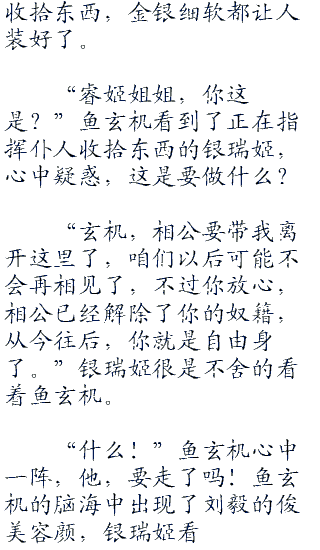 收拾东西，金银细软都让人
装好了。
“睿姬姐姐，你这
是？”鱼玄机看到了正在指
挥仆人收拾东西的银瑞姬，
心中疑惑，这是要做什么？
“玄机，相公要带我离
开这里了，咱们以后可能不
会再相见了，不过你放心，
相公已经解除了你的奴籍，
从今往后，你就是自由身
了。”银瑞姬很是不舍的看
着鱼玄机。
“什么！”鱼玄机心中
一阵，他，要走了吗！鱼玄
机的脑海中出现了刘毅的俊
美容颜，银瑞姬看